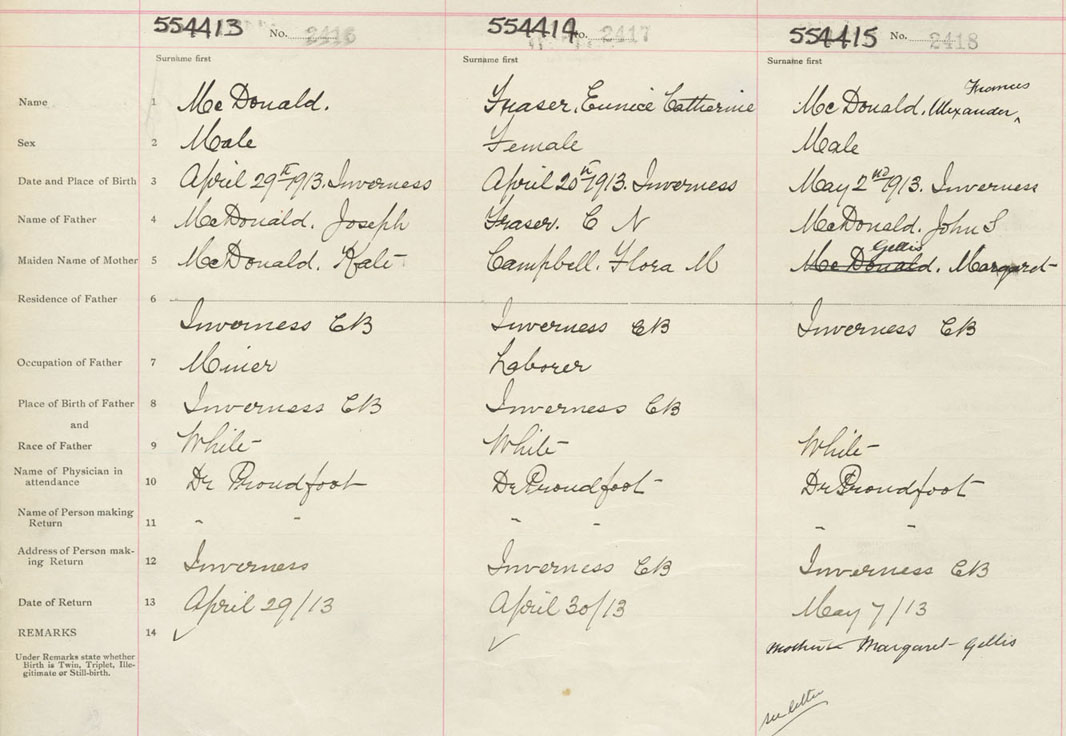 554413 No. 2416 554414 No. 2417 554415 No. 2418
Surname first Surname first Surname first
Thomas
Name 1 McDonald. Fraser, Eunice Catherine McDonald, Alexander ‸
Sex 2 Male Female Male
Date and Place of Birth 3 April 29th 1913. Inverness April 20th 1913. Inverness May 2nd 1913. Inverness
Name of Father 4 McDonald, Joseph Fraser. C N McDonald. John S
Gellis
Maiden Name of Mother 5 McDonald. Kate Campbell. Flora M McDonald. Margaret
Residence of Father 6
Inverness CB Inverness CB Inverness CB
Occupation of Father 7 Miner Laborer
Place of Birth of Father 8 Inverness CB Inverness CB
and
Race of Father 9 White White White
Name of Physician in
attendance 10 Dr Proudfoot Dr Proudfoot Dr Proudfoot
Name of Person making
Return 11 " " " " " "
Address of Person mak-
ing Return 12 Inverness Inverness CB Inverness CB
Date of Return 13 April 29/13 April 30/13 May 7/13
REMARKS 14 ✓ ✓ Mother Margaret Gellis
Under Remarks state whether
Birth is Twin, Triplet, Ille-
gitimate or Still-birth.
see letter